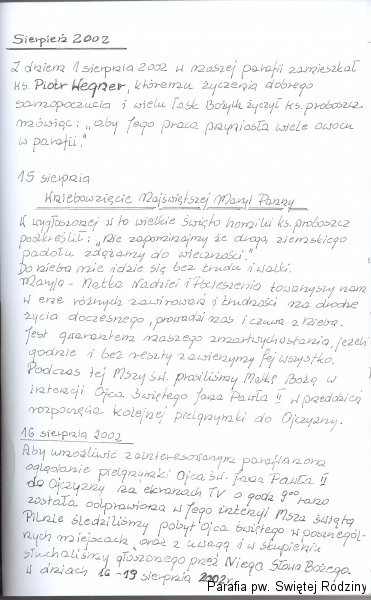 Sierpień 2002
Z dniem 1 sierpnia 2002 w naszej parafii zamieszkał
ks. Piotr Wegner, któremu życzenia dobrego
samopoczucia i wielu łask Bożych życzył ks. proboszcz
mówiąc: „aby Jego praca przyniosła wiele owocu
w parafii."
15 sierpnia
Wniebowzięcie Najświętszej Maryi Panny
W wygłoszonej w to wielkie święto homilii ks. proboszcz
podkreślił: „Nie zapominajmy że drogą ziemskiego
padołu zdążamy do wieczności."
Do nieba nie idzie się bez trudu i walki.
Maryja - Matka Nadziei i Pocieszenia towarzyszy nam
w erze różnych zawirowań i trudności na drodze
życia doczesnego, prowadzi nas i czuwa z Nieba.
Jest gwarantem naszego zmartwychwstania, jeżeli
godnie i bez reszty zawierzymy Jej wszystko.
Podczas tej Mszy św. prosiliśmy Matkę Bożą w
intencji Ojca Świętego Jana Pawła II w przeddzień
rozpoczęcia kolejnej pielgrzymki do Ojczyzny.
16 sierpnia 2002
Aby umożliwić zainteresowanym parafianom
oglądanie pielgrzymki Ojca św. Jana Pawła II
do Ojczyzny na ekranach TV o godz 9⁰⁰ rano
została odprawiona w Jego intencji Msza święta
Pilnie śledziliśmy pobyt Ojca świętego w poszczegól-
nych miejscach, oraz z uwagą i w skupieniu
słuchaliśmy głoszonego przez Niego Słowa Bożego.
w dniach 16-19 sierpnia 2002r.
Parafia pw. Świętej Rodziny